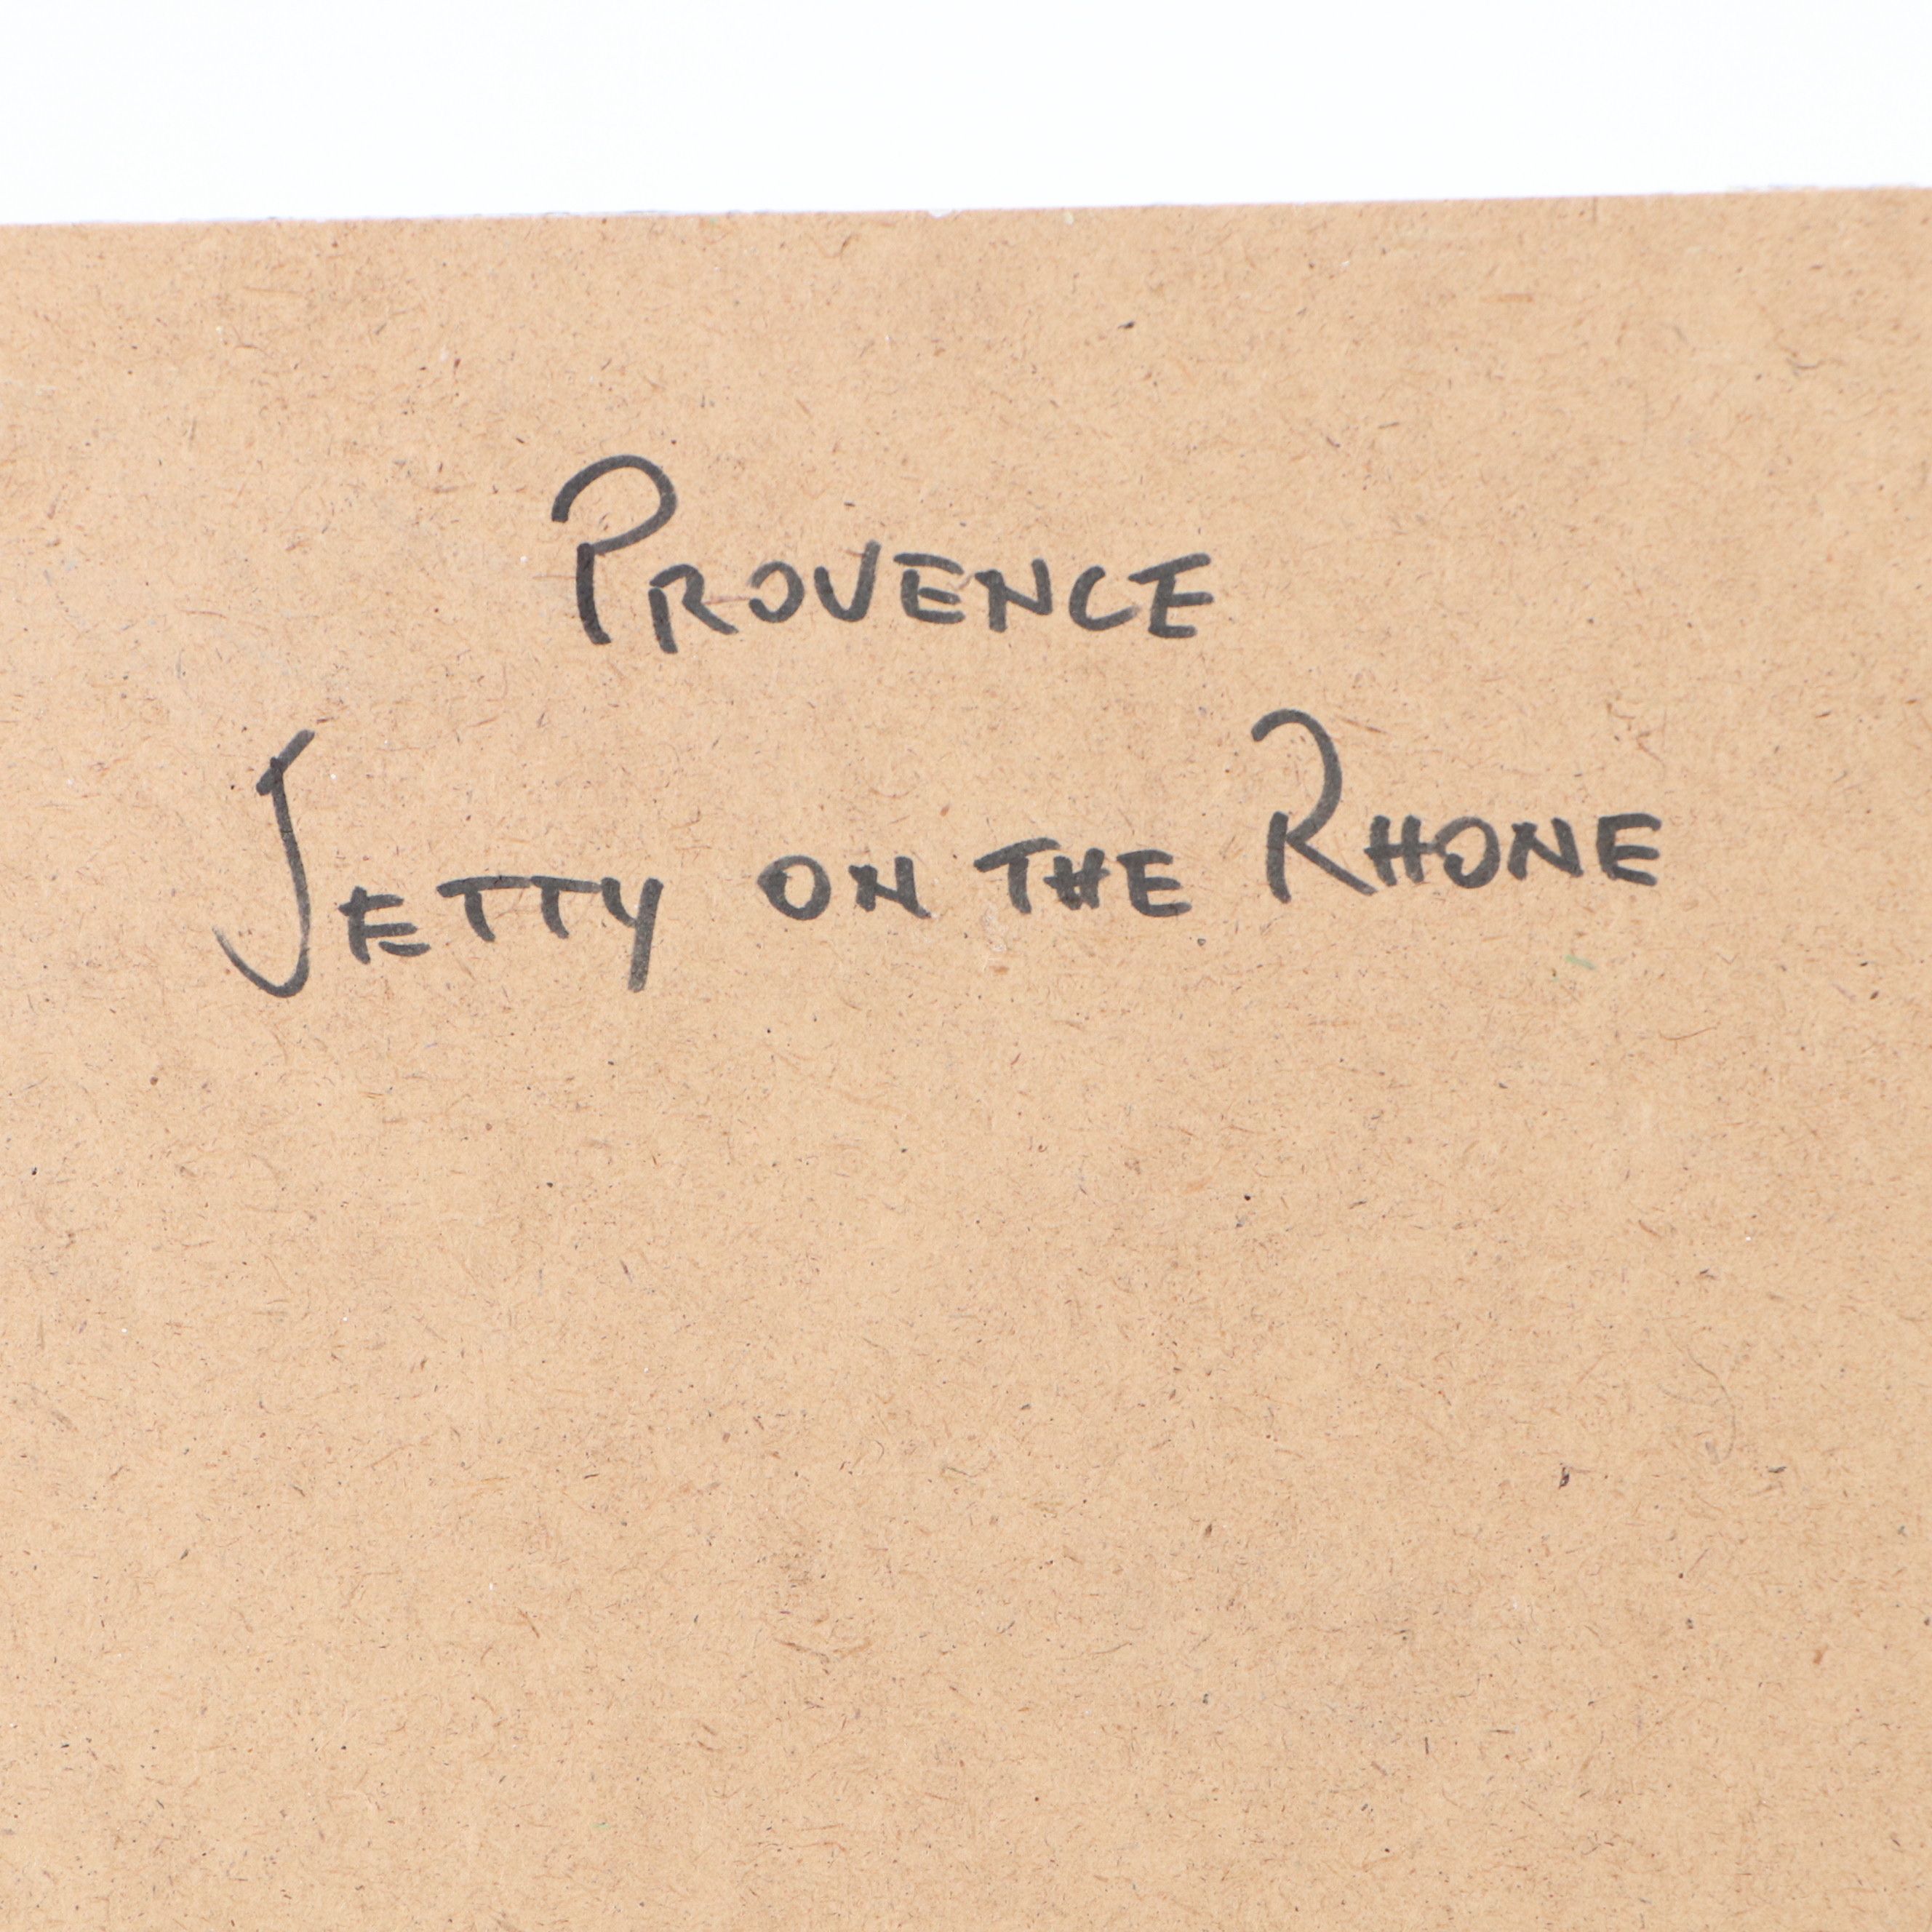 PROVENCE
JETTY ON THE RHONE